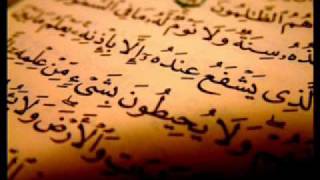 هُمُ الظَّالِمُونَ
سِنَةٌ وَلَا نَوْمٌ لَهُ مَا فِي
الَّذِي يَشْفَعُ عِندَهُ إِلَّا بِإِذْنِهِ يَعْلَمُ
وَلَا يُحِيطُونَ بِشَيْءٍ مِّنْ عِلْمِهِ
وَالْأَرْضَ وَلَا